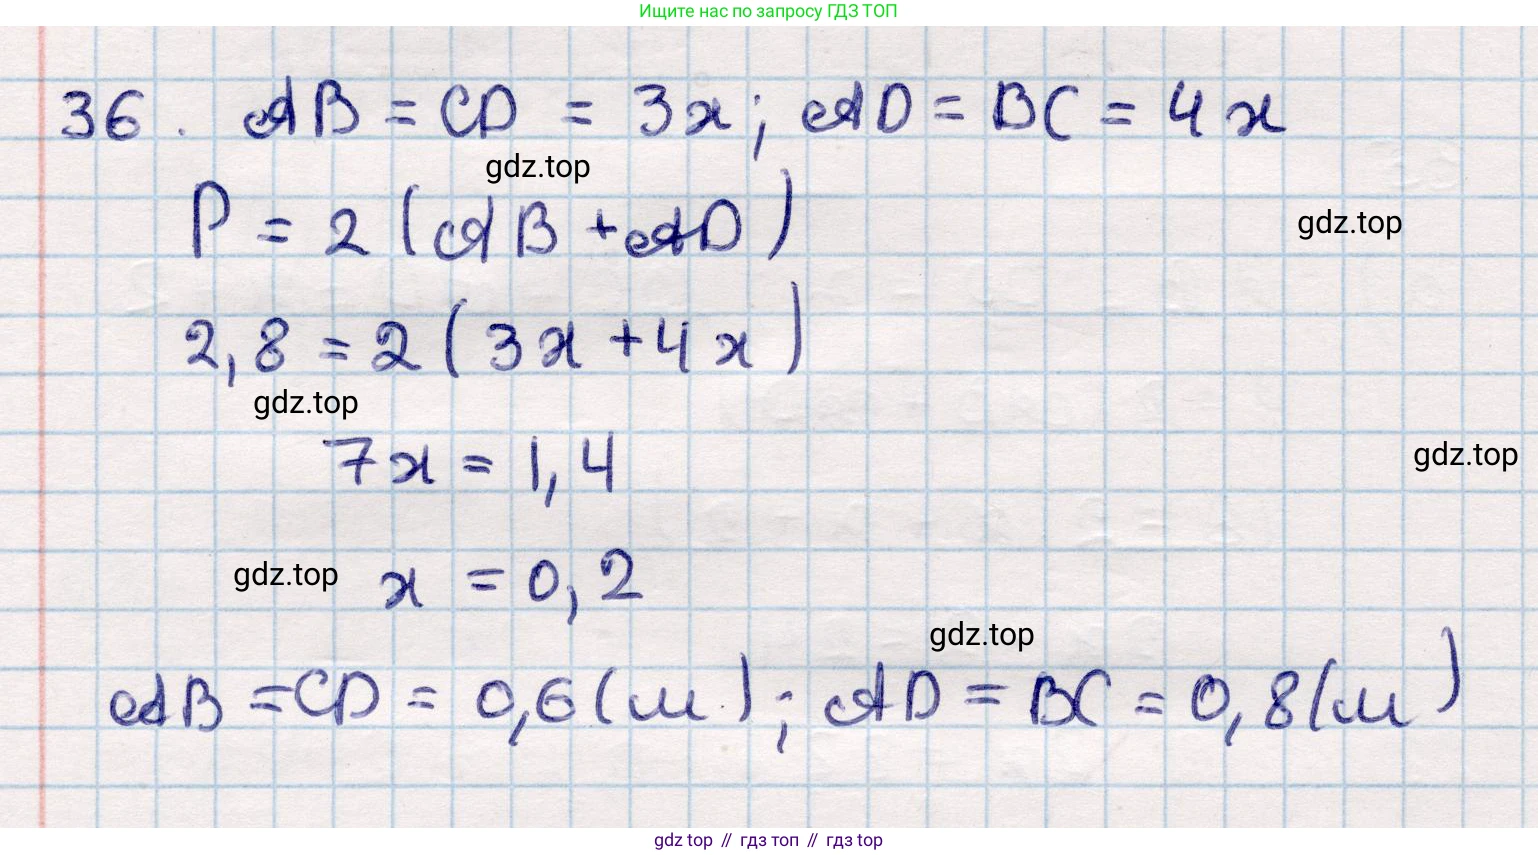 Ищите нас по запросу ГДЗ ТОП
36. AB = CD = 3x; AD = BC = 4x
gdz.top
P = 2 (AB + AD)
gdz.top
2,8 = 2 (3x + 4x)
gdz.top
7x = 1,4
gdz.top
gdz.top x = 0,2
gdz.top
AB = CD = 0,6 (м); AD = BC = 0,8 (м)
gdz top // гдз топ // гдз top